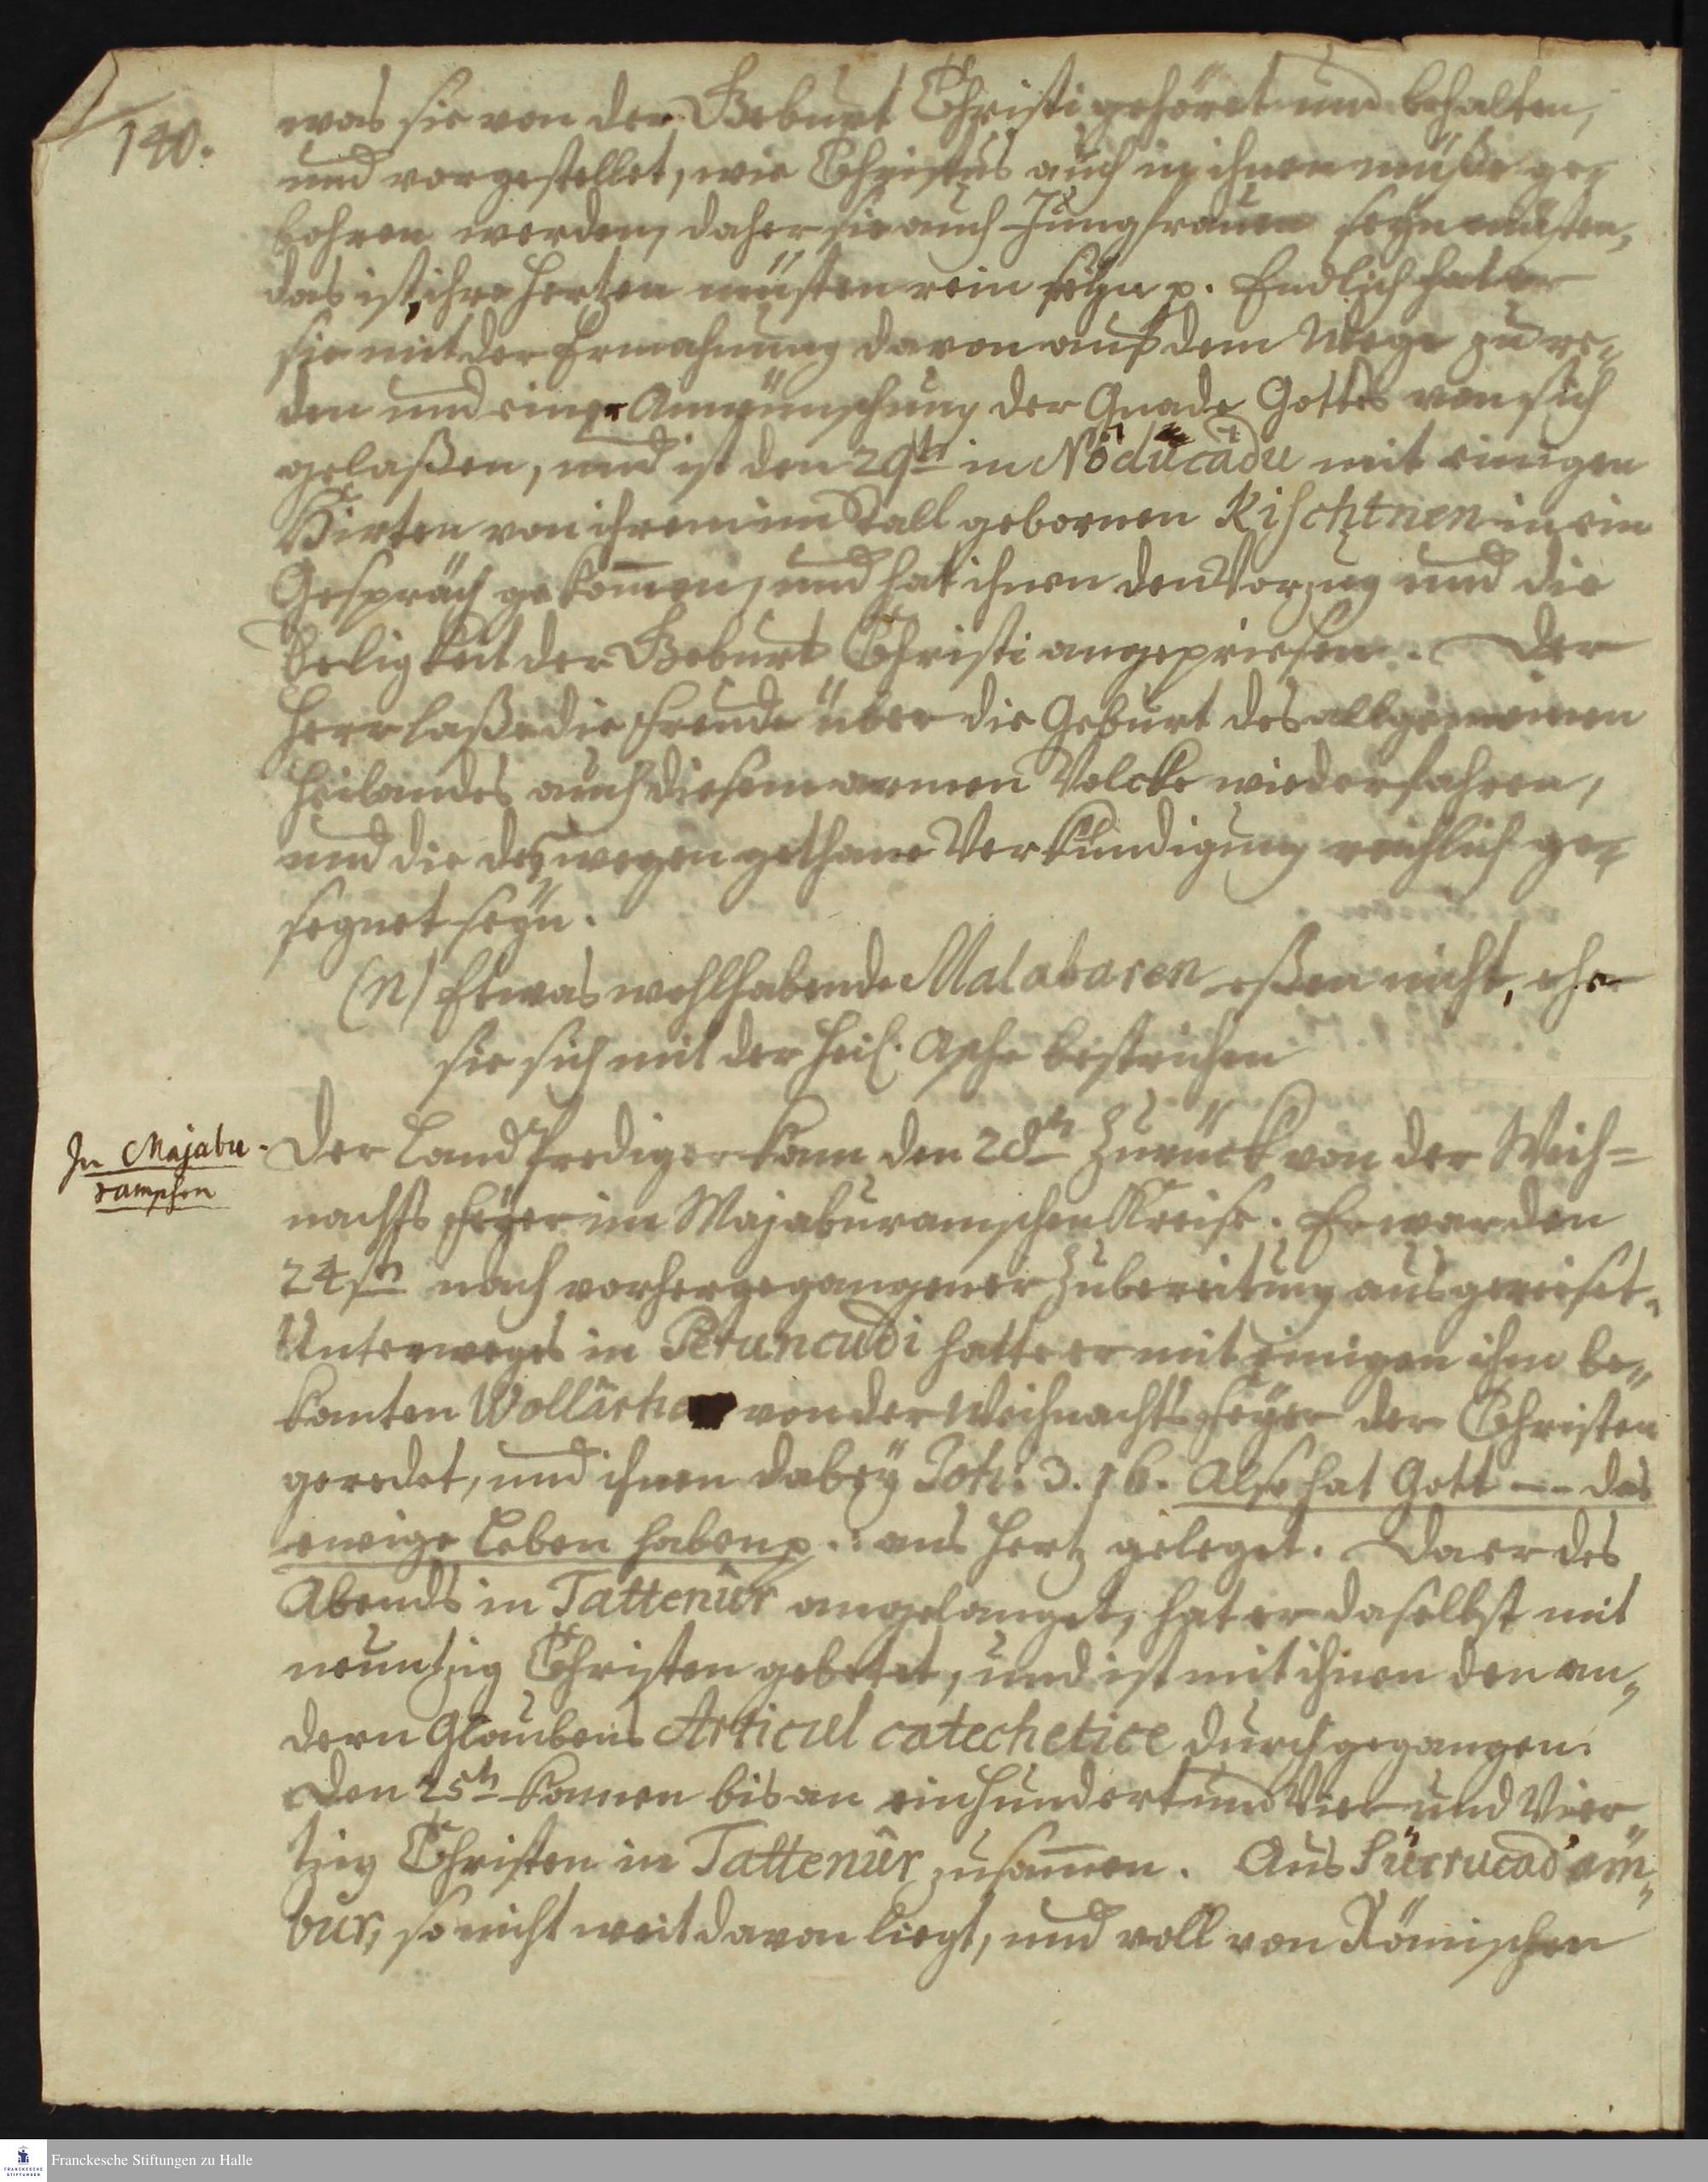 140.
was sie von der Geburt Christi gehöret und behalten,
und vorgestellet, wie Christus auch in ihnen müße ge-
bohren werden, daher sie auch Jungfrauen seyn müsten,
das ist, ihre Hertzen müsten rein seyn p. Endlich hat er
sie mit der Ermahnung davon auf dem Wege zu re-
den und einer Anwünschung der Gnade Gottes von sich
gelaßen, und ist den 29sten in Nöducadu mit einigen
Hirten von ihrem im Stall gebornen Kischtnen in ein
Gespräch gekom̅en, und hat ihnen den Vorzug und die
Seligkeit der Geburt Christi angepriesen. Der
Herr laße die Freude über die Geburt des allgemeinen
Heilandes auch diesem armen Volcke wiederfahren,
und die deswegen gethane Verkündigung reichlich ge-
segnet seyn.
(n) Etwas wohlhabende Malabaren eßen nicht, ehe
sie sich mit der heil. Asche bestrichen
In Majabu-
ramschen
Der Land Prediger kam den 28ten zurück von der Weih=
nachts Feyer im Majaburamschen Kreise. Er war den
24sten nach vorhergegangener Zubereitung ausgereiset.
Unterweges in Petuncudi hatte er mit einigen ihm be-
kanten von der Weihnachts Feyer der Christen
geredet, und ihnen dabey Joh: 3. 16. Also hat Gott -- das
ewige Leben haben p. ans Hertz geleget. Da er des
Abends in Tattenûr angelanget, hat er daselbst mit
neuntzig Christen gebetet, und ist mit ihnen den an-
dern Glaubens Articul catechetice durchgegangen.
Den 25ten kamen bis an einhundert und Vier und Vier-
tzig Christen in Tattenûr zusam̅en. Aus
bur, so nicht weit davon liegt, und voll von Römischen
Franckesche Stiftungen zu Halle